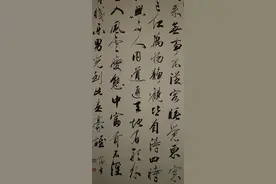 來無事不從容睡覺東窗
已紅萬物靜觀皆自得四時
興与人同道通天地有形外
入風雲變態中富貴不淫
賤樂男兒到此是豪雄